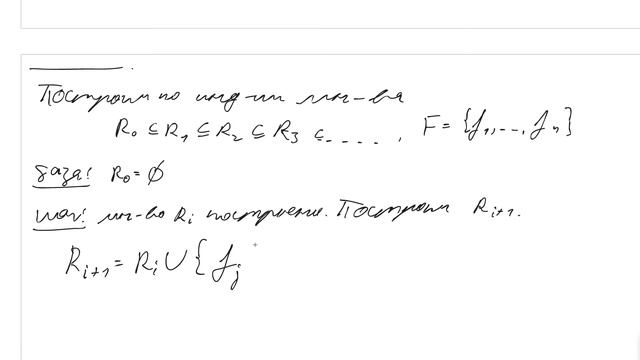 Построим по инд-ии мн-ва
R₀ ⊆ R₁ ⊆ R₂ ⊆ R₃ ⊆ ..... , F = {f₁, ..., fₙ}
база: R₀ = ∅
шаг: мн-во Rᵢ построено. Построим Rᵢ₊₁.
Rᵢ₊₁ = Rᵢ ∪ { fⱼ